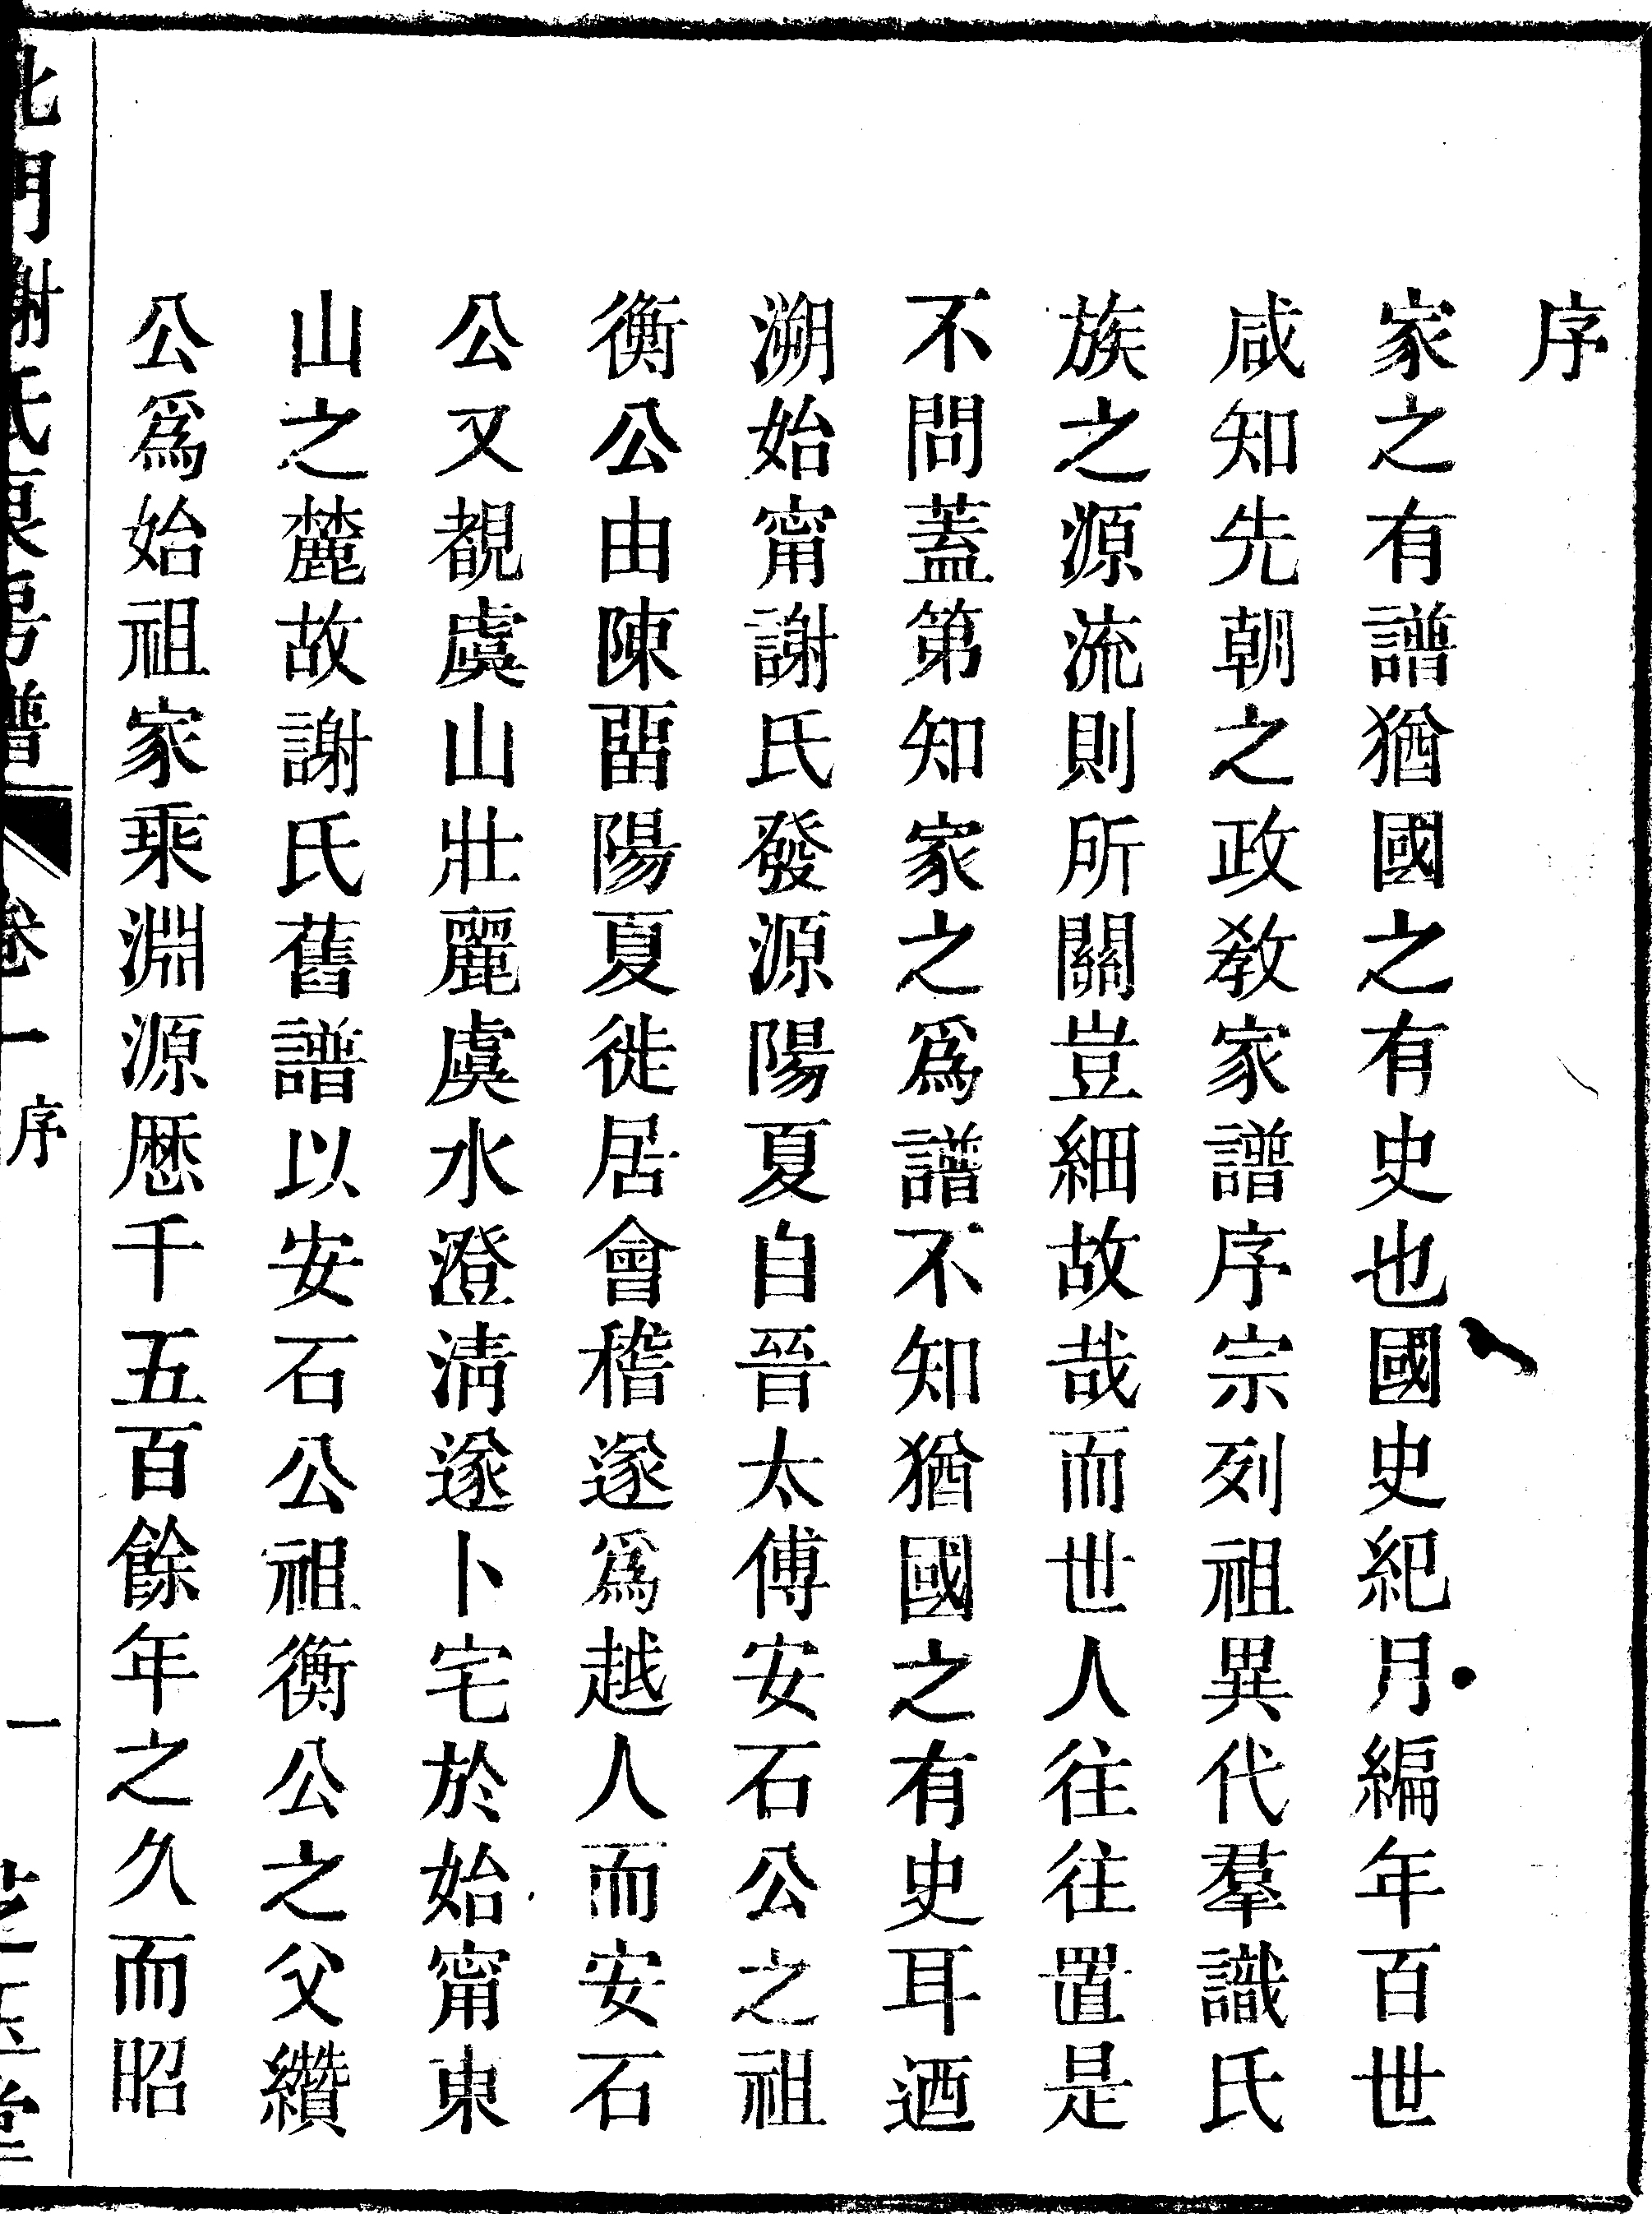 序
家之有譜猶國之有史也國史紀月編年百世
咸知先朝之政敎家譜序宗列祖異代羣識氏
族之源流則所關豈細故哉而世人往往置是
不問蓋第知家之爲譜不知猶國之有史耳迺
溯始甯謝氏發源陽夏自晉太傅安石公之祖
衡公由陳畱陽夏徙居會稽遂爲越人而安石
公又覩虞山壯麗虞水澄淸遂卜宅於始甯東
山之麓故謝氏舊譜以安石公祖衡公之父纘
公爲始祖家乘淵源歷千五百餘年之久而昭
北門謝氏房譜
卷一
序
一